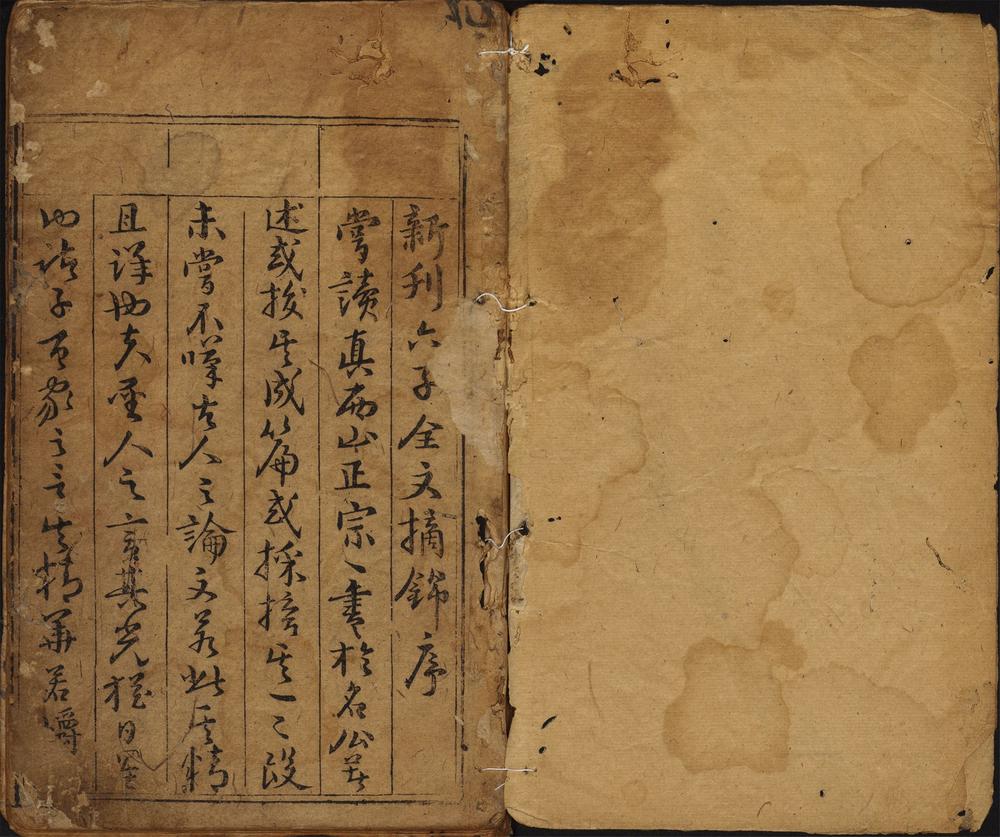 新刊六子全文摘錦序
嘗讀真西山正宗一書於名公著
述或授其成篇或採擿其一二段
未嘗不嘆古人之論文若此其精
且詳也夫聖人之言其光猶日
也諸子百家之言其精華若嚼